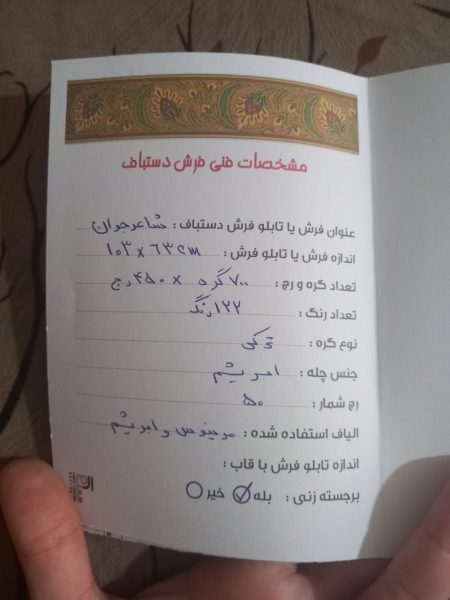 مشخصات فنی فرش دستباف
عنوان فرش یا تابلو فرش دستباف : شاعر جوان
اندازه فرش یا تابلو فرش : ۱۰۳ × ۶۳ cm
تعداد گره و رج : ۷۰۰ گره × ۴۵۰ رج
تعداد رنگ : ۱۲۲ رنگ
نوع گره : ترکی
جنس چله : ابریشم
رج شمار : ۵۰
الیاف استفاده شده : مرینوس و ابریشم
اندازه تابلو فرش با قاب :
برجسته زنی : بله خیر